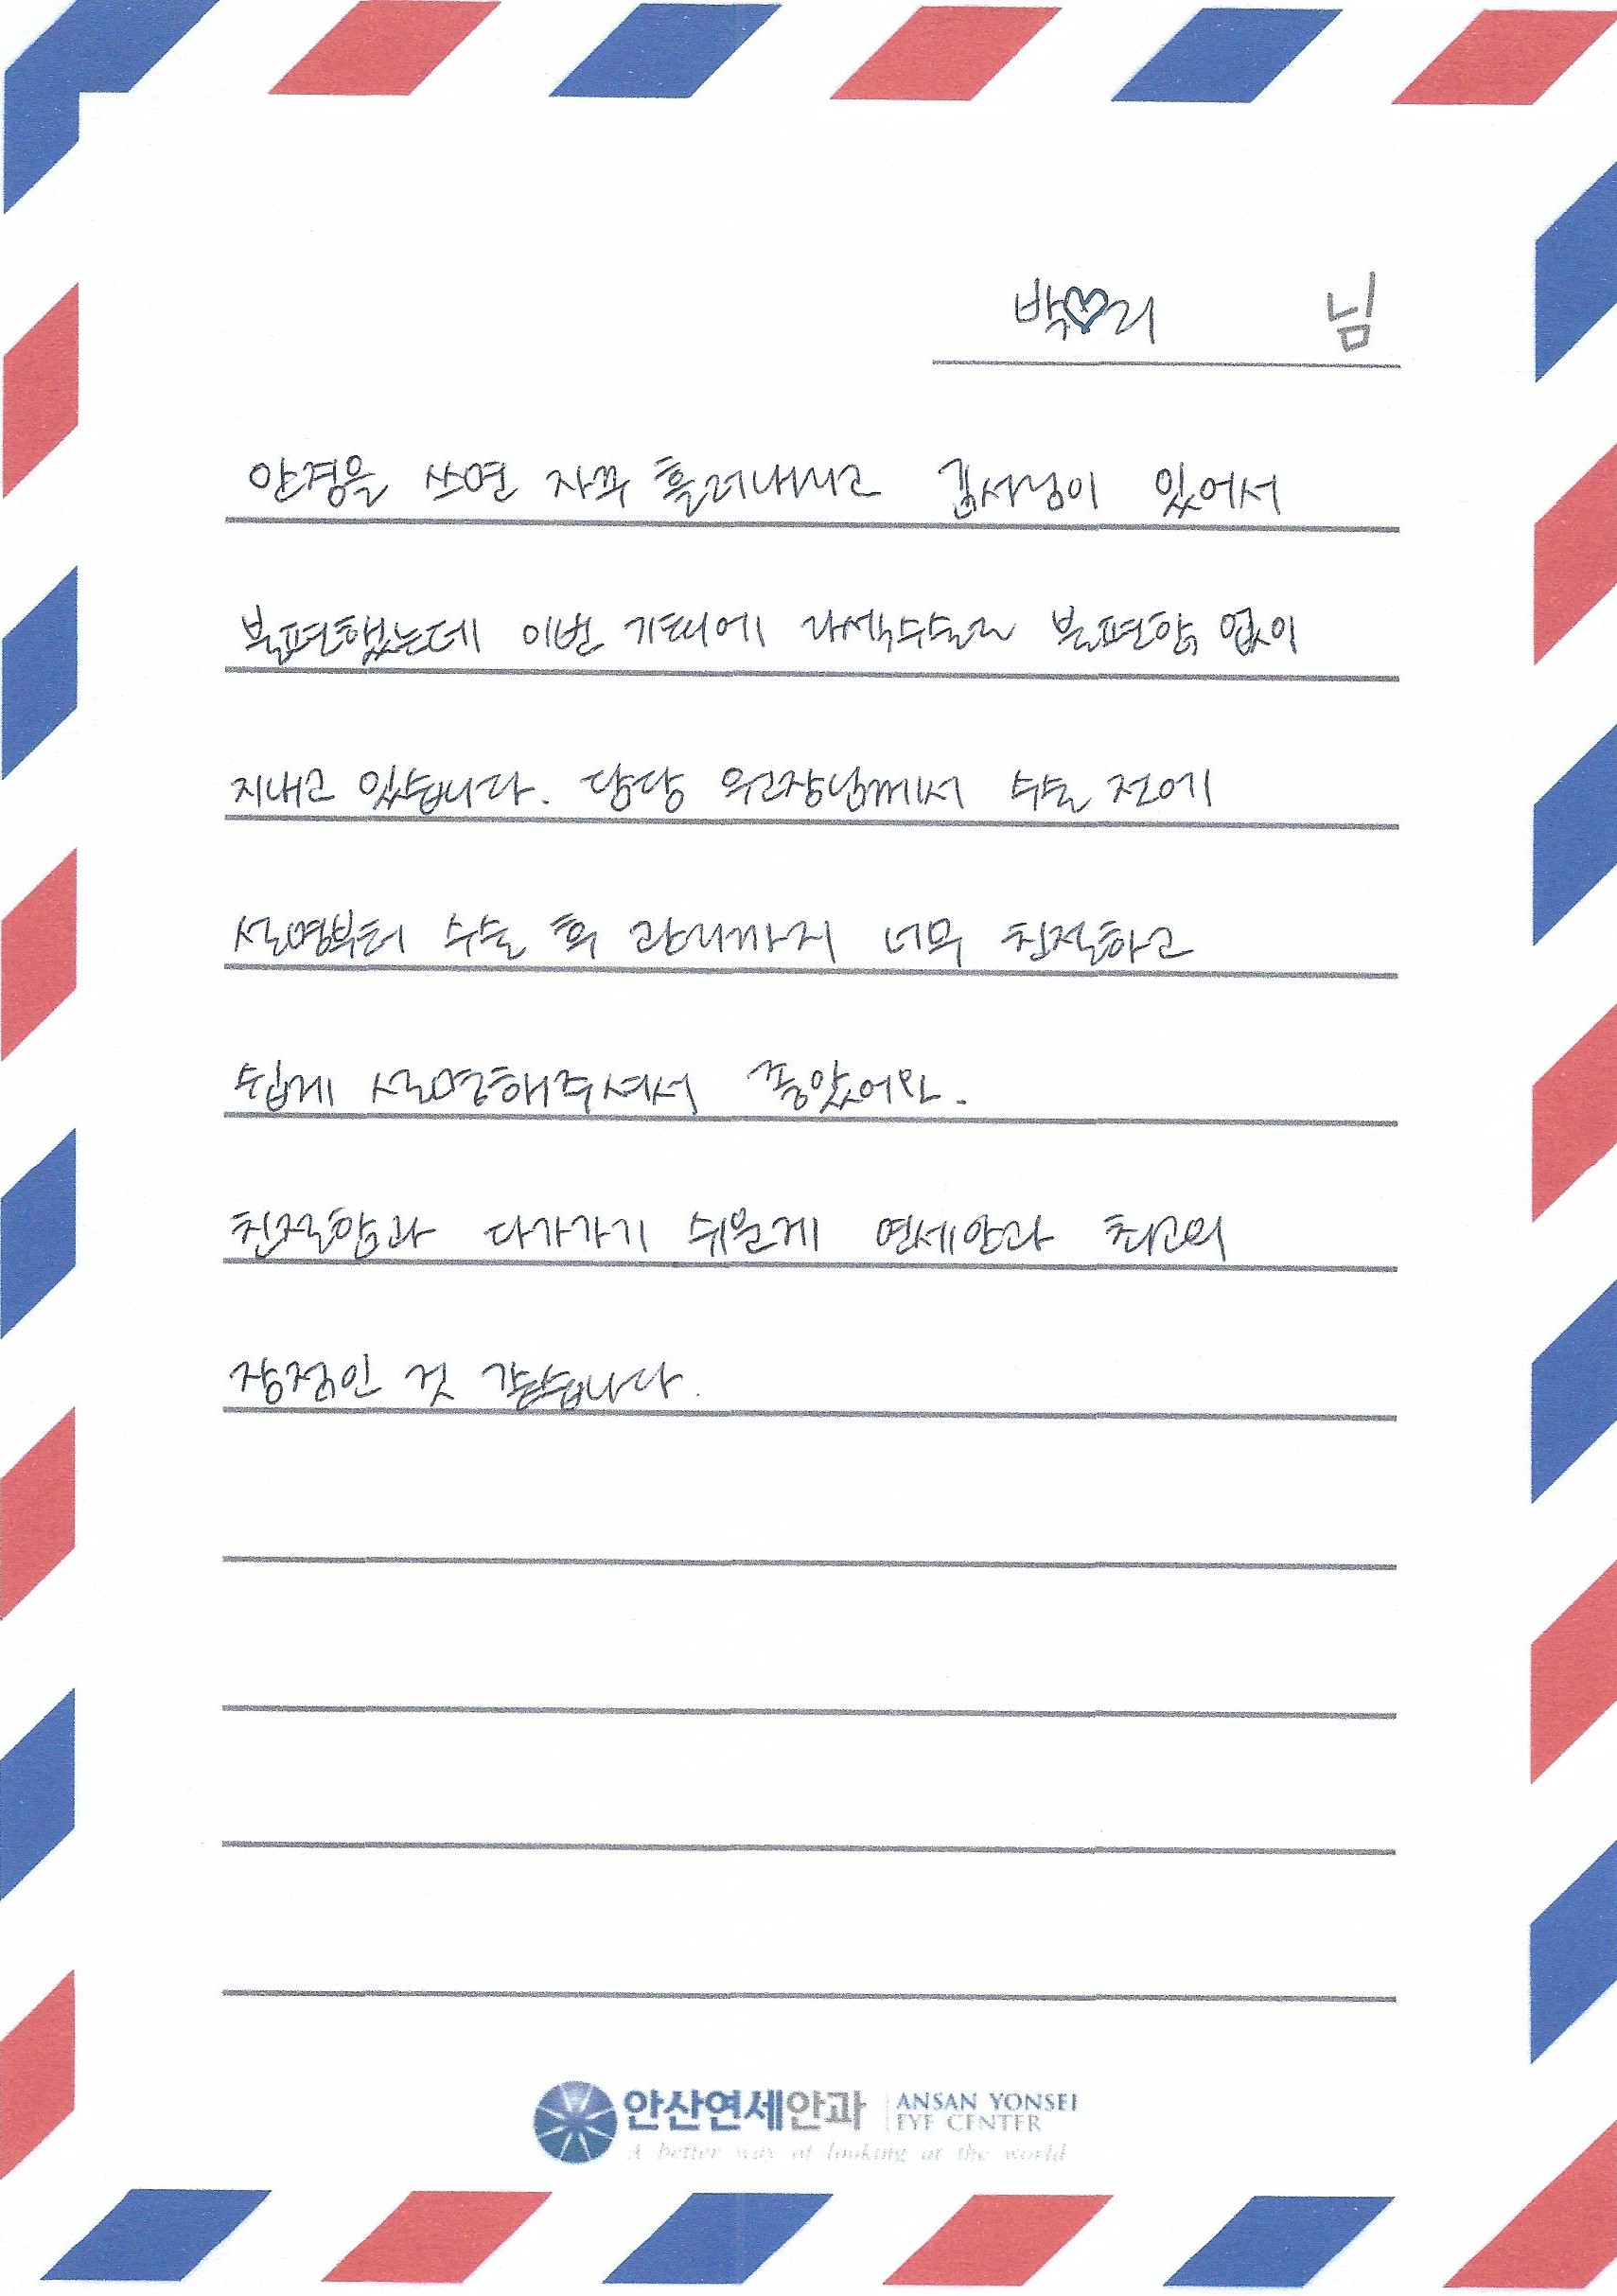 박♡리 님
안경을 쓰면 자꾸 흘러내리고 겁사님이 있어서
불편했는데 이번 기회에 라섹수술로 불편함 없이
지내고 있습니다. 담당 원장님께서 수술 전에
설명부터 수술 후 관리까지 너무 친절하고
쉽게 설명해주셔서 좋았어요.
친절함과 다가가기 쉬운게 연세안과 최고의
장점인 것 같습니다.
안산연세안과 ANSAN YONSEI
EYE CENTER
A better way of looking at the world